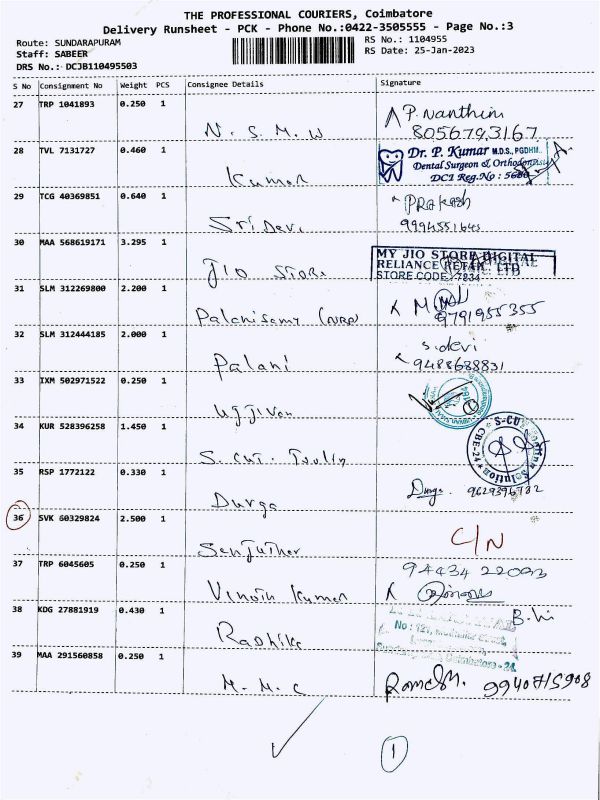 THE PROFESSIONAL COURIERS, Coimbatore
Delivery Runsheet - PCK - Phone No.:0422-3505555 - Page No.:3
Route: SUNDARAPURAM RS No.: 1104955
Staff: SABEER RS Date: 25-Jan-2023
DRS No.: DCJB110495503
S No Consignment No Weight PCS Consignee Details Signature
27 TRP 1041893 0.250 1 N. S. M. W P. Nanthini
8056793167
28 TVL 7131727 0.460 1 Kumar Dr. P. Kumar M.D.S., PGDHM.,
Dental Surgeon & Orthodontist
DCI Reg.No :
29 TCG 40369851 0.640 1 Sri Devi Prakash
30 MAA 568619171 3.295 1 JIO Store MY JIO STORE DIGITAL
RELIANCE RETAIL LTD
STORE CODE 7834
31 SLM 312269800 2.200 1 Palanisamy
9791955355
32 SLM 312444185 2.000 1 Palani S. devi
9488688831
33 IXM 502971522 0.250 1 Ujjivan
34 KUR 528396258 1.450 1 S. Cut. Toolin S-CUT Tooling Solution
CBE-24
35 RSP 1772122 0.330 1 Durga Durga. 9629396782
36 SVK 60329824 2.500 1 C/N
37 TRP 6045605 0.250 1 Vinoth Kumar 94434 22093
38 KDG 27881919 0.430 1 Radhika
No : 121,
Coimbatore - 24
39 MAA 291560858 0.250 1 M. M. C 9940715908
1